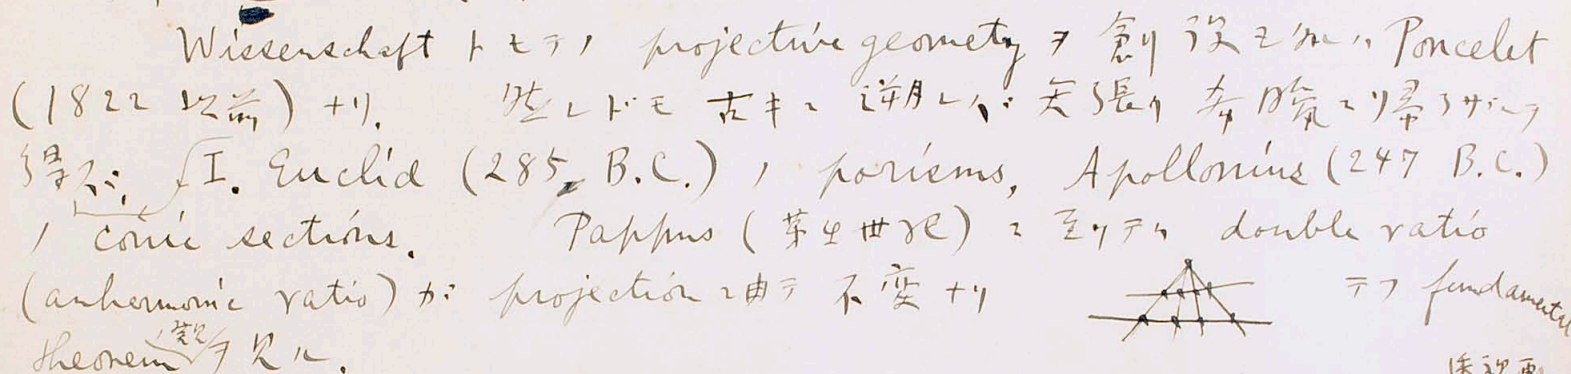 Wissenschaft トシテノ projective geometry ヲ 創設セルハ Poncelet
(1822 以前) ナリ. 然レドモ 古キニ 遡レバ 矢張リ 希臘ニ帰ラザルヲ
得ズ. I. Euclid (285 B.C.) ノ porisms, Apollonius (247 B.C.)
ノ conic sections. Pappus (第四世紀) ニ 至リテハ double ratio
(anharmonic ratio) ガ projection ニ由テ 不変ナリ テフ fundamental
theorem ヲ見ル.